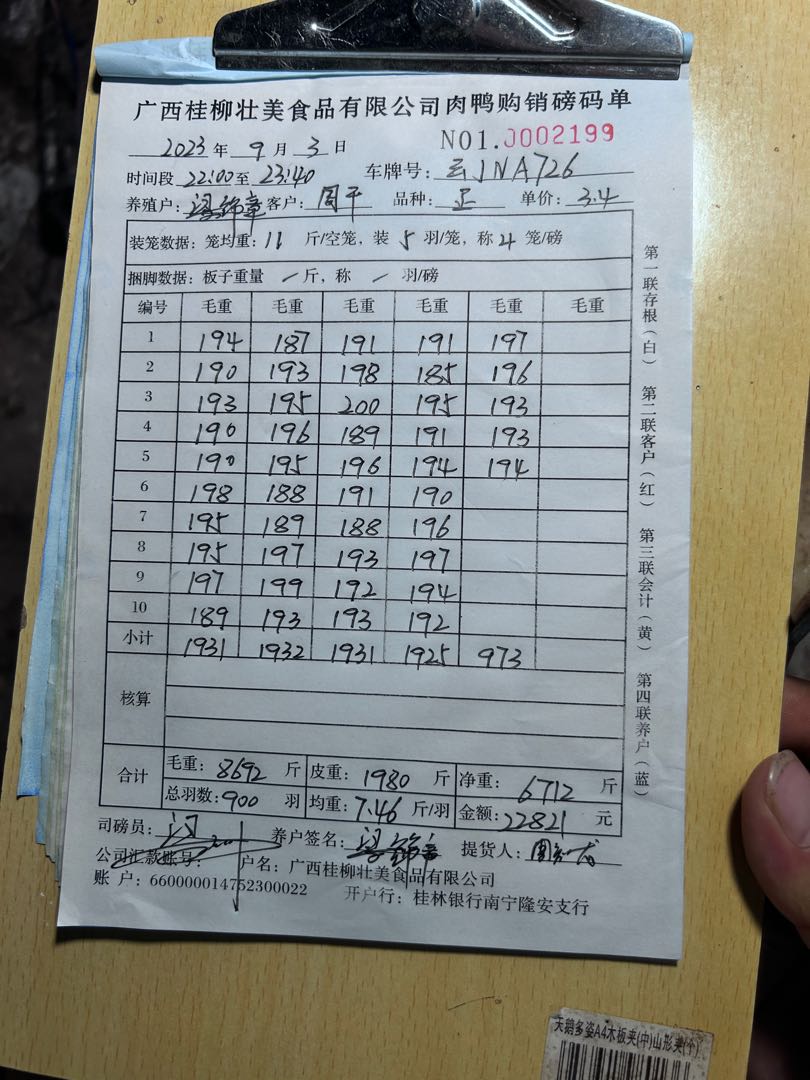 广西桂柳壮美食品有限公司肉鸭购销磅码单
2023 年 9 月 3 日 NO1.0002199
时间段 22:00 至 23:40 车牌号：云JNA726
养殖户：梁锦章 客户：周平 品种：正 单价：3.4
装笼数据：笼均重：11 斤/空笼，装 5 羽/笼，称 4 笼/磅
捆脚数据：板子重量 / 斤，称 / 羽/磅
编号 毛重 毛重 毛重 毛重 毛重 毛重
1 194 187 191 191 197
2 190 193 198 185 196
3 193 195 200 195 193
4 190 196 189 191 193
5 190 195 196 194 194
6 198 188 191 190
7 195 189 188 196
8 195 197 193 197
9 197 199 192 194
10 189 193 193 192
小计 1931 1932 1931 1925 973
核算
合计 毛重：8692 斤 皮重：1980 斤 净重：6712 斤
总羽数：900 羽 均重：7.46 斤/羽 金额：22821 元
司磅员： 养户签名：梁锦章 提货人：
公司汇款账号： 户名：广西桂柳壮美食品有限公司
账 户：660000014752300022 开户行：桂林银行南宁隆安支行
第一联存根（白） 第二联客户（红） 第三联会计（黄） 第四联养户（蓝）
天鹅多姿A4木板夹(中)山形夹(个)